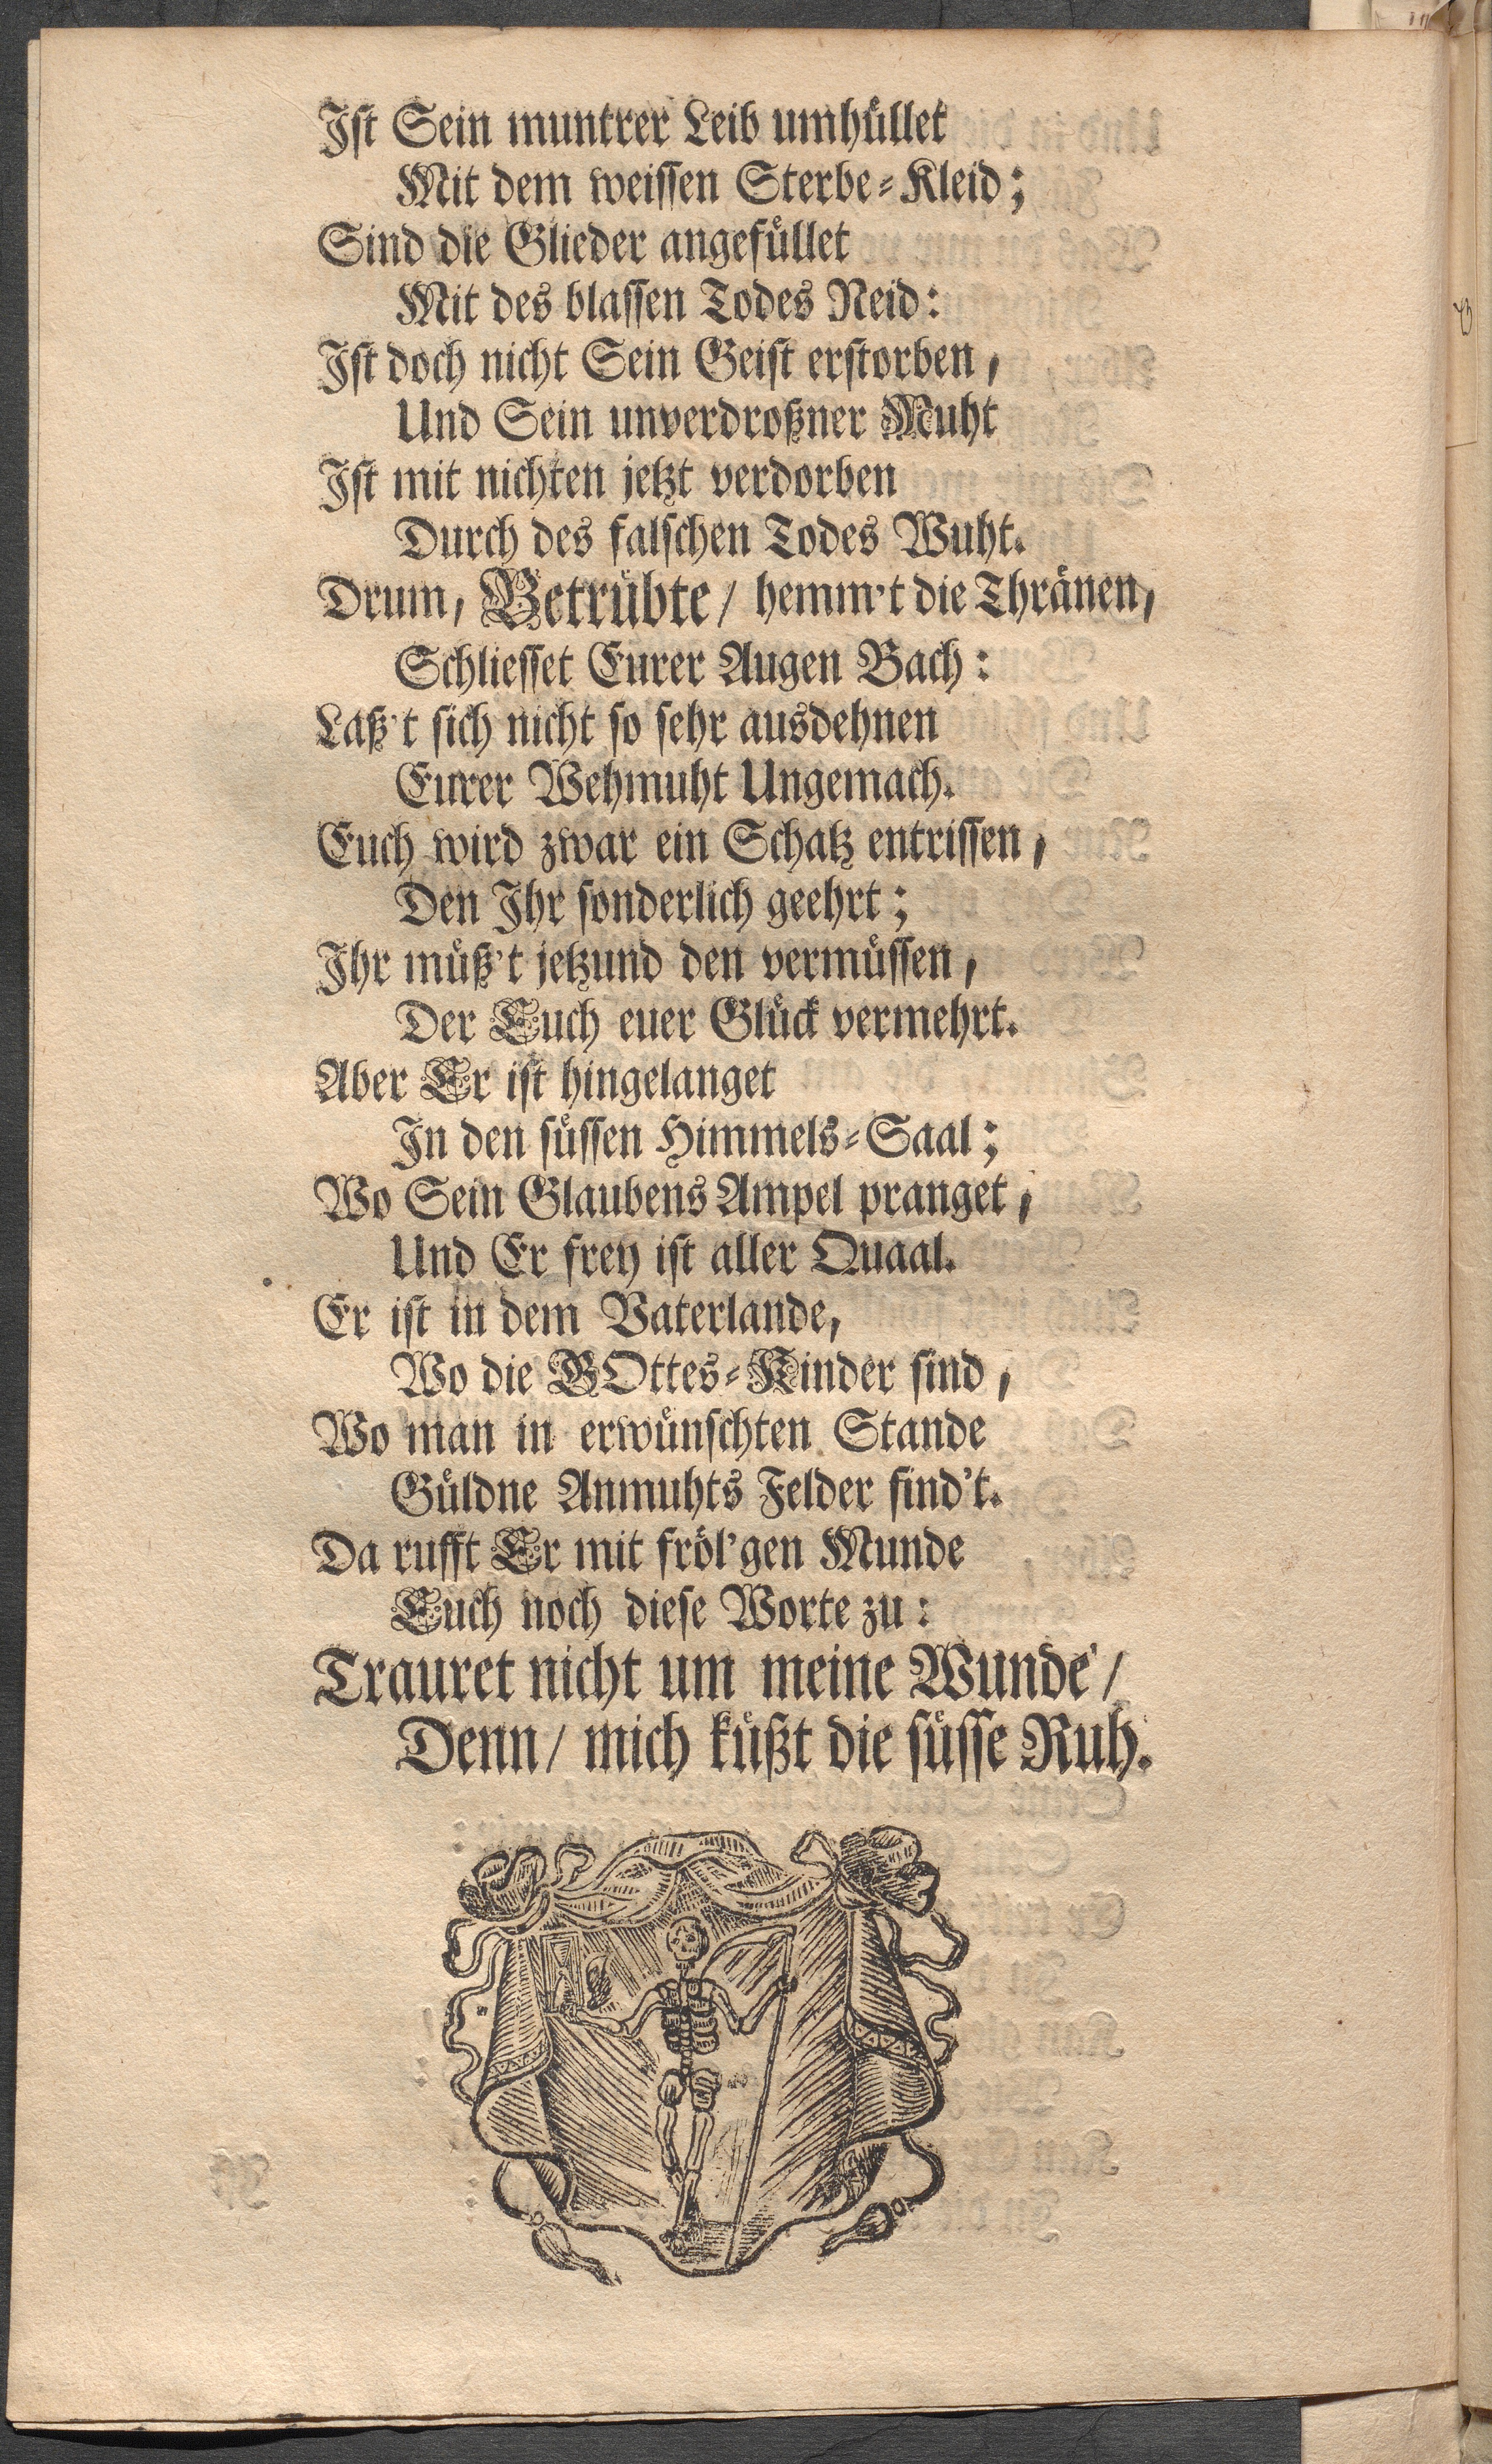 Ist Sein muntrer Leib umhüllet
Mit dem weissen Sterbe-Kleid;
Sind die Glieder angefüllet
Mit des blassen Todes Neid:
Ist doch nicht Sein Geist erstorben,
Und Sein unverdroßner Muht
Ist mit nichten jetzt verdorben
Durch des falschen Todes Wuht.
Drum, Betrübte/ hemm't die Thränen,
Schliesset Eurer Augen Bach:
Laß't sich nicht so sehr ausdehnen
Eurer Wehmuht Ungemach.
Euch wird zwar ein Schatz entrissen,
Den Ihr sonderlich geehrt;
Ihr müß't jetzund den vermüssen,
Der Euch euer Glück vermehrt.
Aber Er ist hingelanget
In den süssen Himmels-Saal;
Wo Sein Glaubens Ampel pranget,
Und Er frey ist aller Quaal.
Er ist in dem Vaterlande,
Wo die GOttes-Kinder sind,
Wo man in erwünschten Stande
Güldne Anmuhts Felder find't.
Da rufft Er mit fröl'gen Munde
Euch noch diese Worte zu:
Trauret nicht um meine Wunde/
Denn/ mich küßt die süsse Ruh.